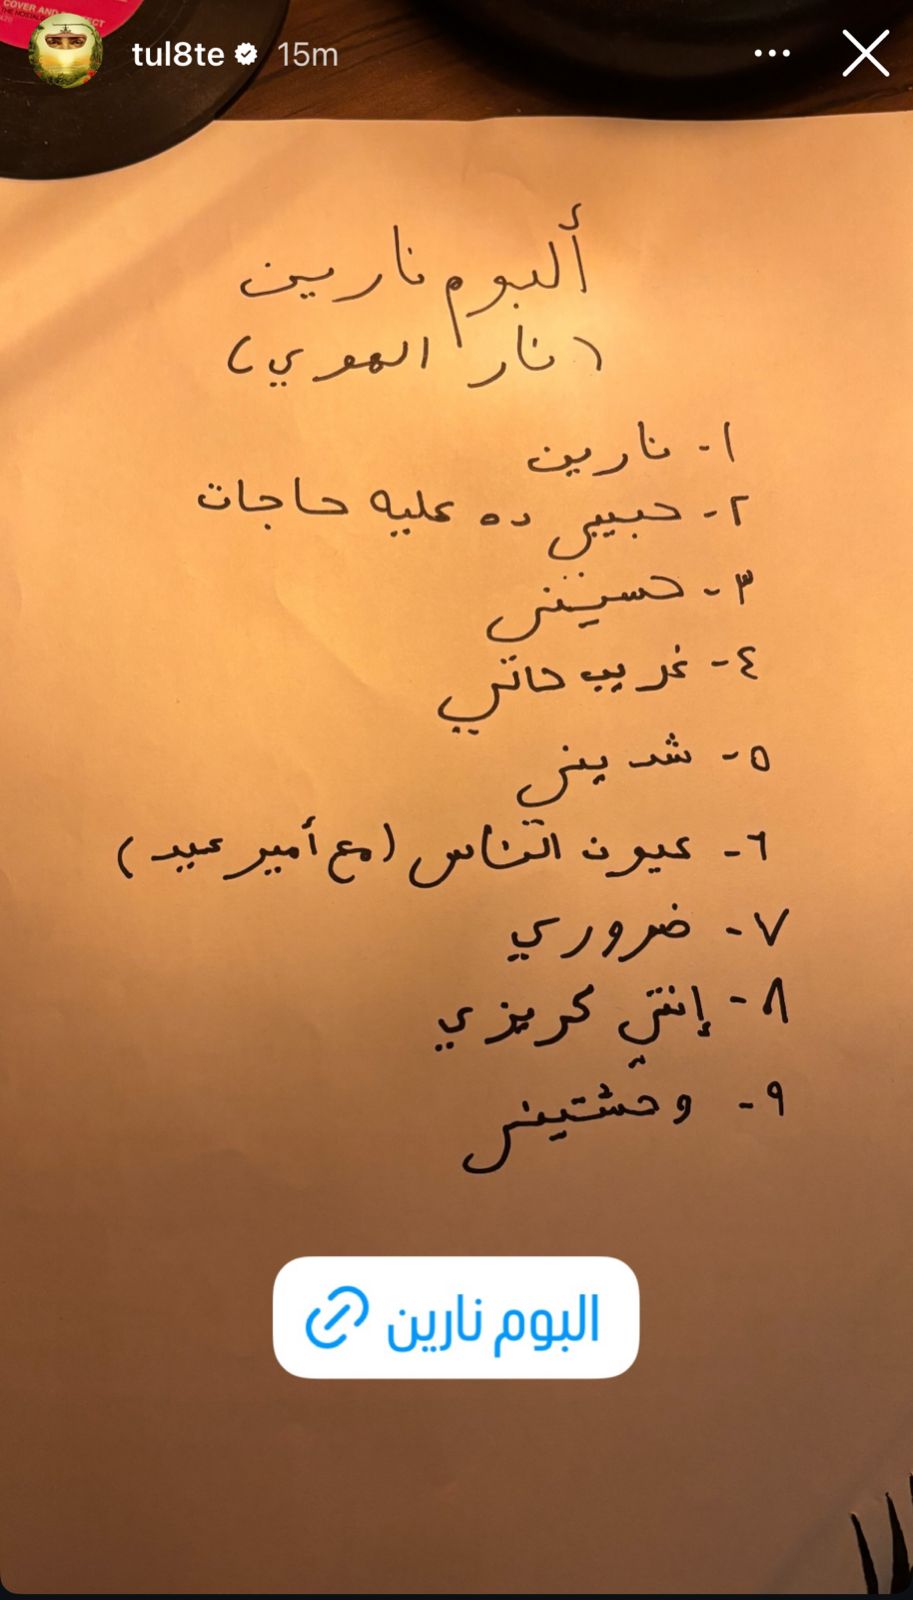 COVER AND
tul8te 15m
ألبوم نارين
(نار الهوي)
١- نارين
٢- حبيبي ده عليه حاجات
٣- حسيني
٤- غريب حالتي
٥- شديني
٦- عيون الناس (مع أمير عيد)
٧- ضروري
٨- إنتي كريزي
٩- وحشتيني
البوم نارين